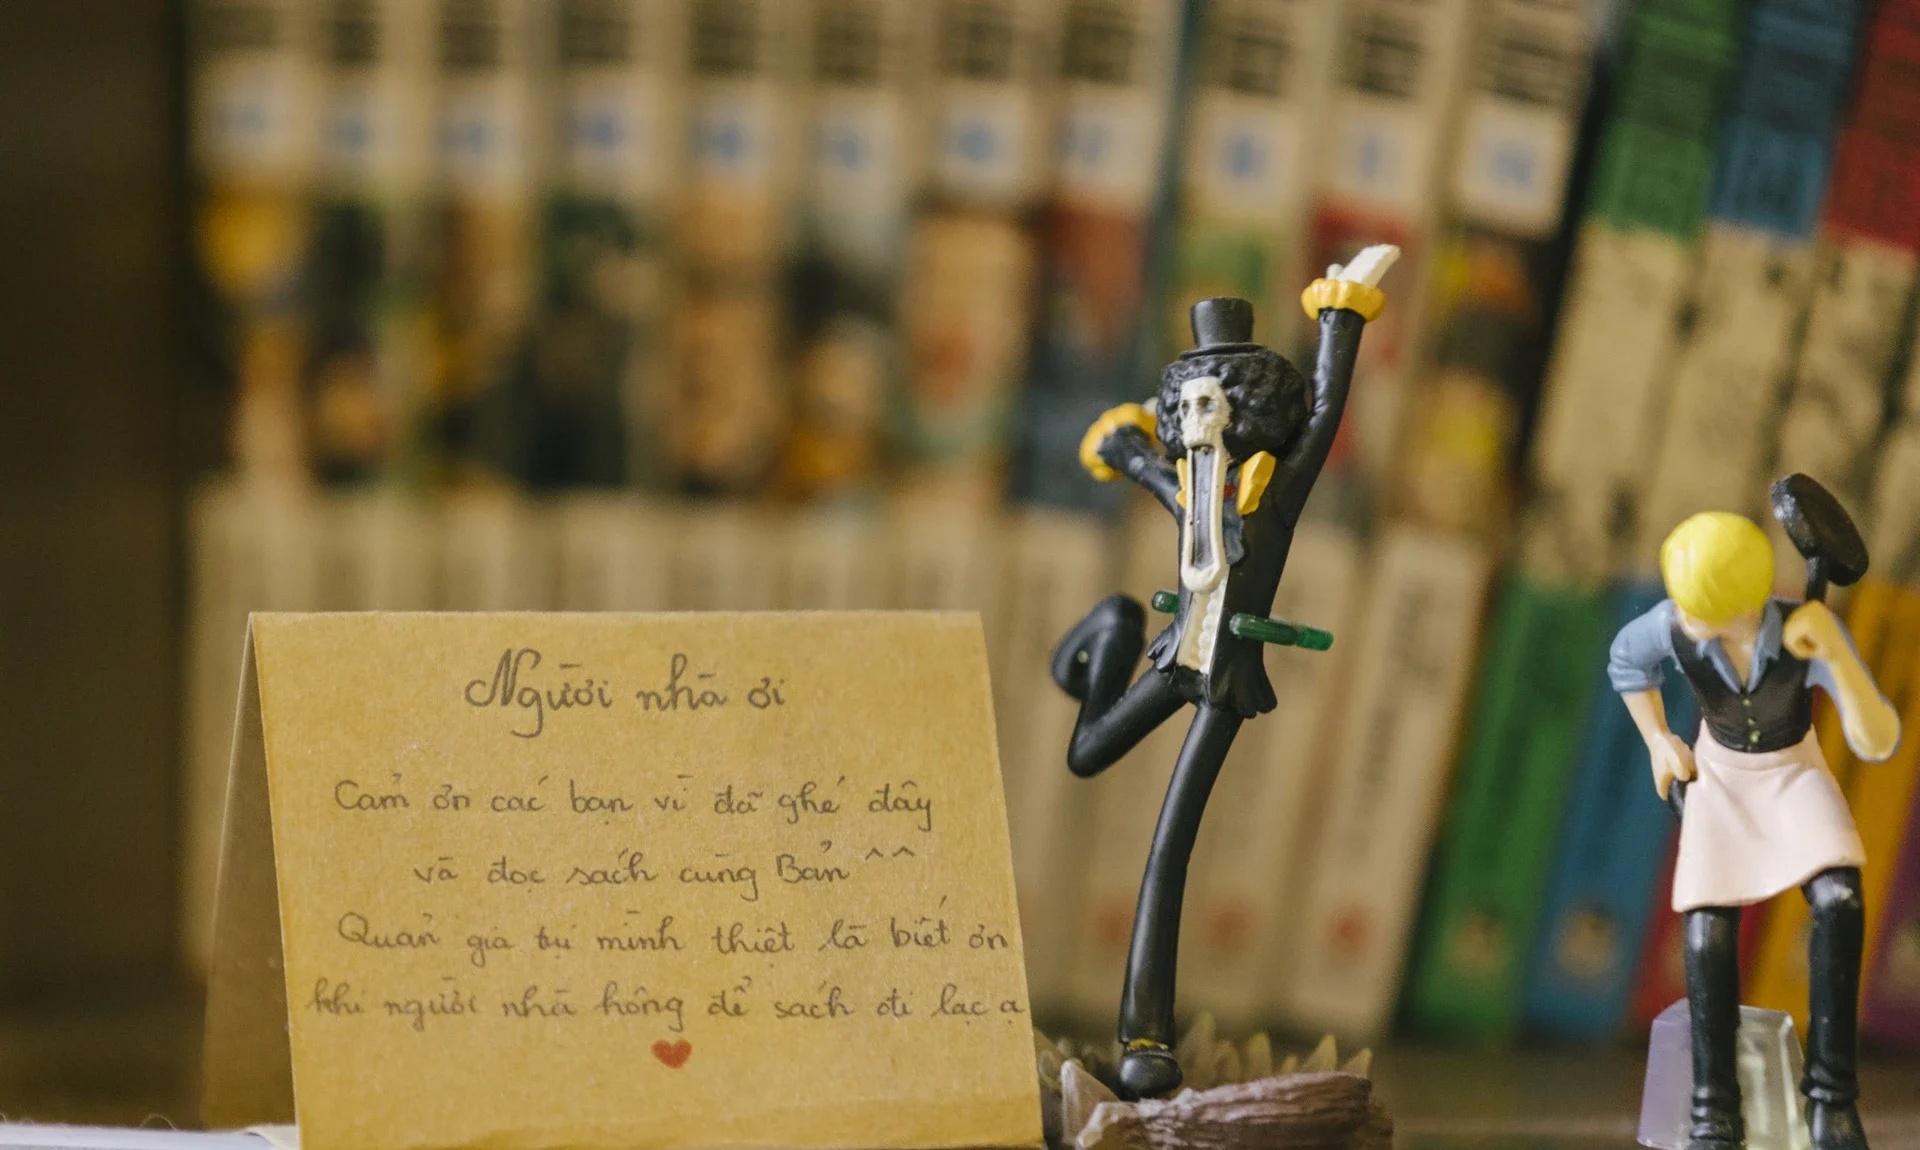 Người nhà ơi
Cảm ơn các bạn vì đã ghé đây
và đọc sách cùng Bản ^^
Quản gia tụi mình thiệt là biết ơn
khi người nhà hông để sách đi lạc ạ